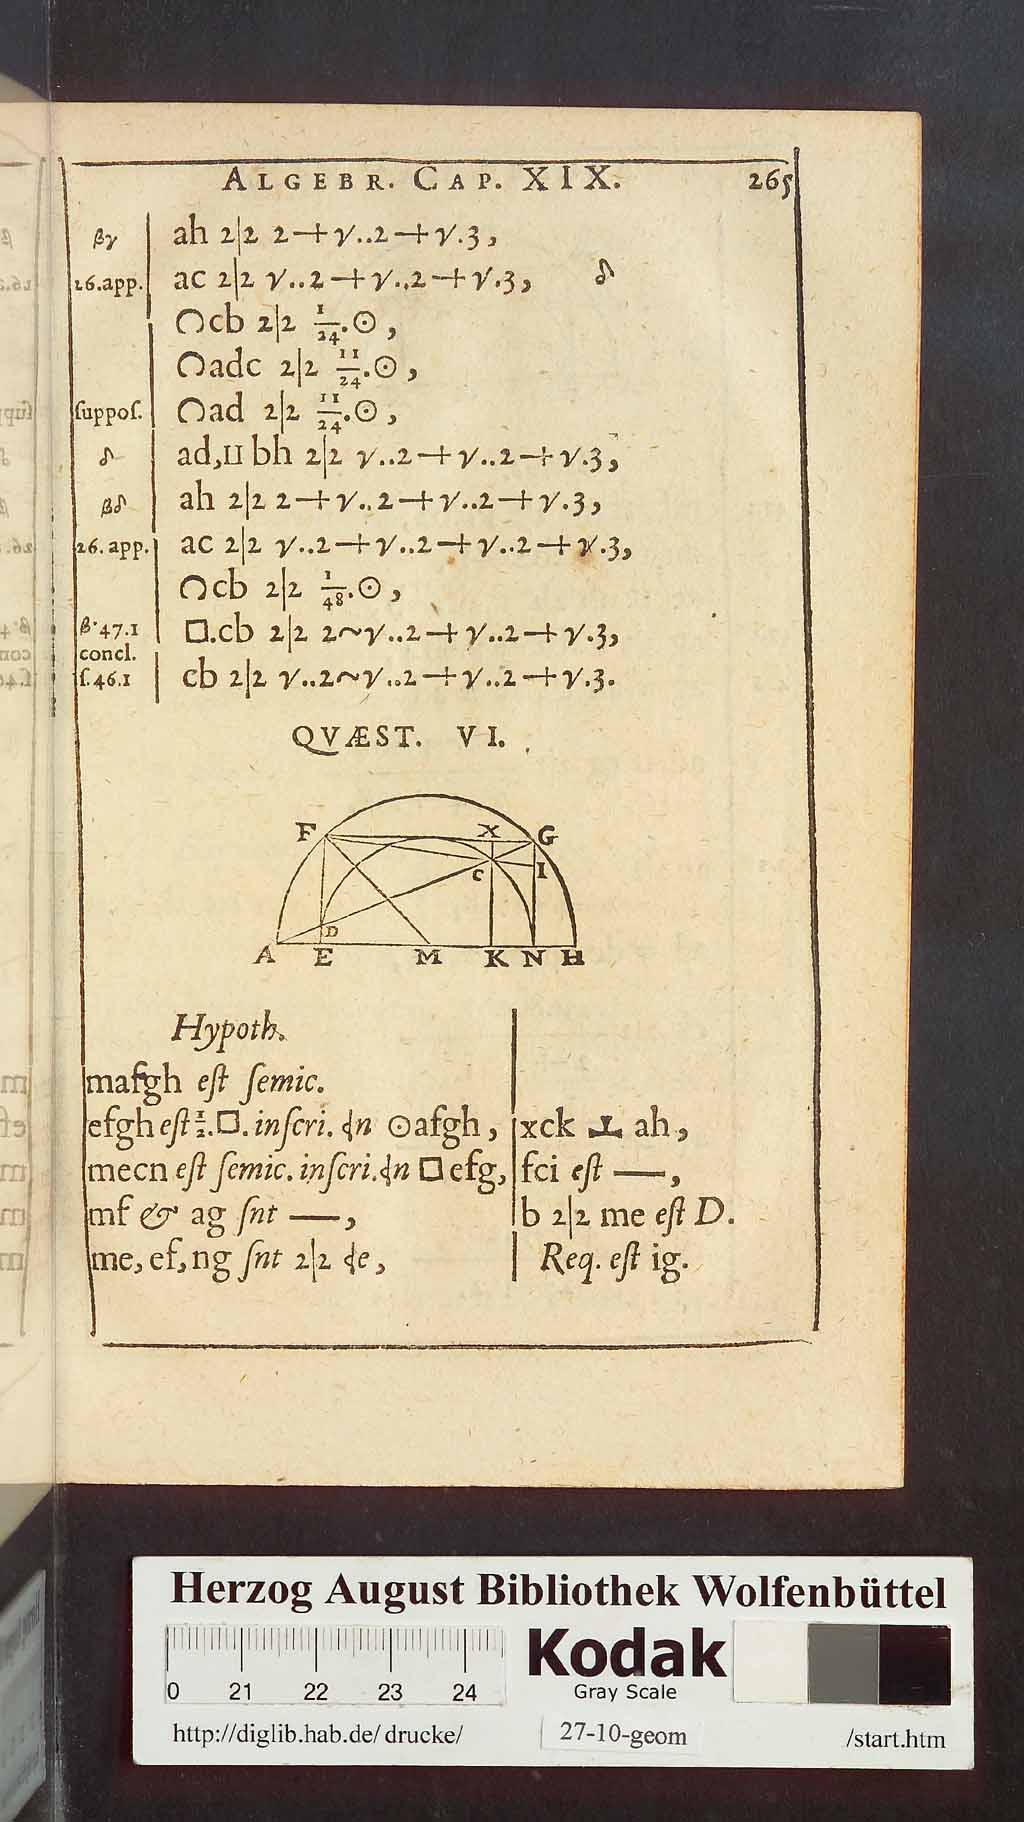 ALGEBR. CAP. XIX. 265
βγ ah 2|2 2+√..2+√.3,
26.app. ac 2|2 √..2+√..2+√.3, δ
◠cb 2|2 1/24.☉,
◠adc 2|2 11/24.☉,
ſuppoſ. ◠ad 2|2 11/24.☉,
δ ad,II bh 2|2 √..2+√..2+√.3,
βδ ah 2|2 2+√..2+√..2+√.3,
26. app. ac 2|2 √..2+√..2+√..2+√.3,
◠cb 2|2 1/48.☉,
β·47.1 □.cb 2|2 2~√..2+√..2+√.3,
concl.
ſ.46.1 cb 2|2 √..2~√..2+√..2+√.3.
QVÆST. VI.
F X G
C I
D
A E M K N H
Hypoth.
mafgh eſt ſemic.
efgh eſt 1/2.□.inſcri. ⦠n ☉afgh, xck ⊥ ah,
mecn eſt ſemic. inſcri.⦠n □efg, fci eſt —,
mf & ag ſnt —, b 2|2 me eſt D.
me, ef, ng ſnt 2|2 ⦠e, Req. eſt ig.
Herzog August Bibliothek Wolfenbüttel
Kodak
Gray Scale
0 21 22 23 24
http://diglib.hab.de/ drucke/ 27-10-geom /start.htm